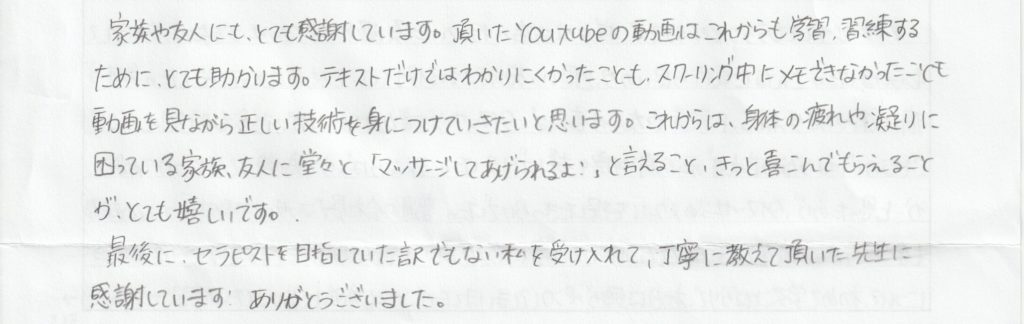 家族や友人にも、とても感謝しています。頂いたYouTubeの動画はこれからも学習、習練する
ために、とても助かります。テキストだけではわかりにくかったことも、スクーリング中にメモできなかったことも
動画を見ながら正しい技術を身につけていきたいと思います。これからは、身体の疲れや凝りに
困っている家族、友人に堂々と「マッサージしてあげられるよ!」と言えること、きっと喜こんでもらえること
が、とても嬉しいです。
最後に、セラピストを目指していた訳でもない私を受け入れて、丁寧に教えて頂いた先生に
感謝しています。ありがとうございました。